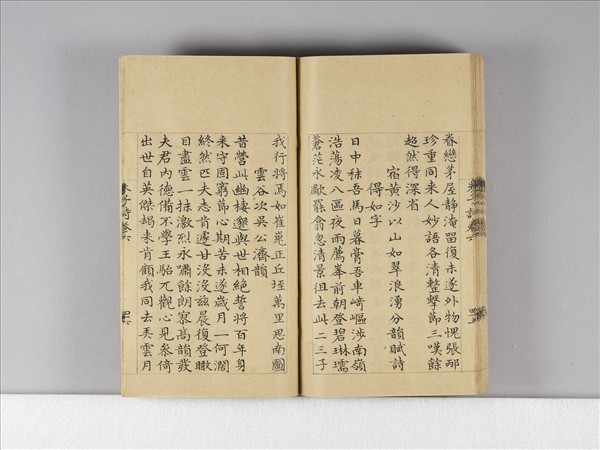 眷戀茅屋静淹留復未遂外物愧張邴
珍重同來人妙語各清整擊節三嘆餘
超然得深省
宿黄沙以山如翠浪湧分韻賦詩
得如字
日中秣吾馬日暮膏吾車崎嶇涉南嶺
浩蕩凌八區夜雨薦峯前朝登碧琳瑶
蒼茫永歗罷翕忽清景徂去此二三子
我行將焉如崔嵬正丘垤萬里思南圖
雲谷次吳公濟韻
昔營此幽棲邂與世相絶誓將百年身
来守固窮節心期苦未遂歲月一何濶
終然匹夫志肯遽甘没没兹晨復登瞰
目盡雲一抹激烈永嘯餘朗寡高韻發
夫君内德備不學王駘兀觀心見参倚
出世自英傑朅来肯顧我同去弄雲月
朱子詩卷六